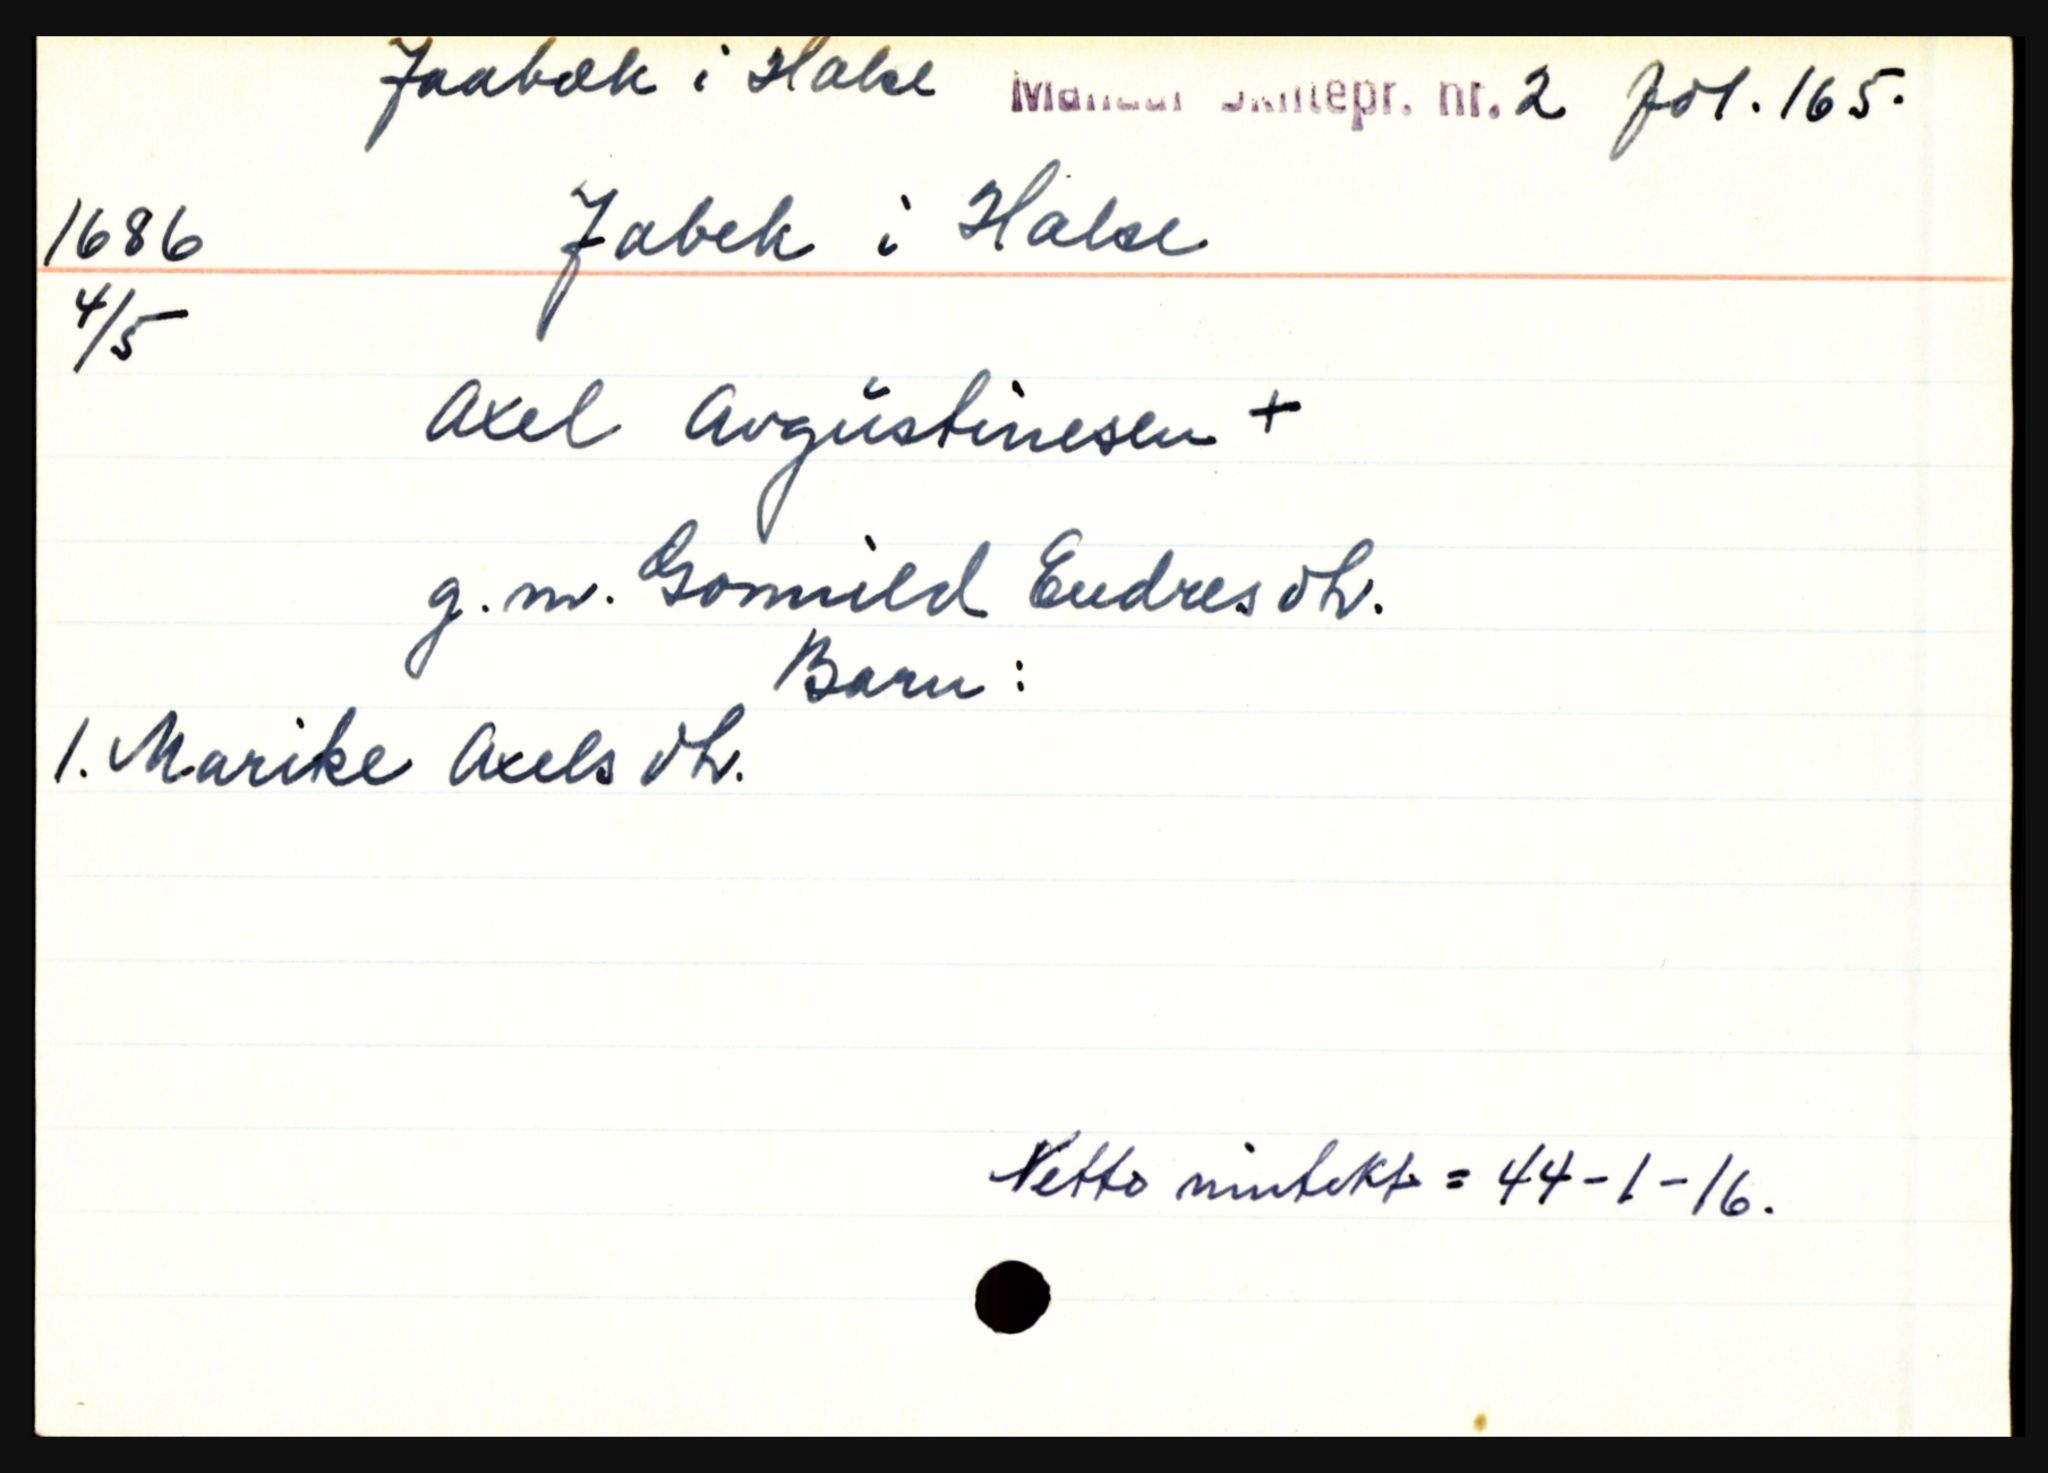 Jaabæk i Halse Mandal Skiftepr. nr. 2 fol. 165.
1686 Jabek i Halse
4/5
Axel Avgustinesen +
g. m. Gonnild Endresdtr.
Barn:
1. Marike Axelsdtr.
Netto inntekt = 44-1-16.